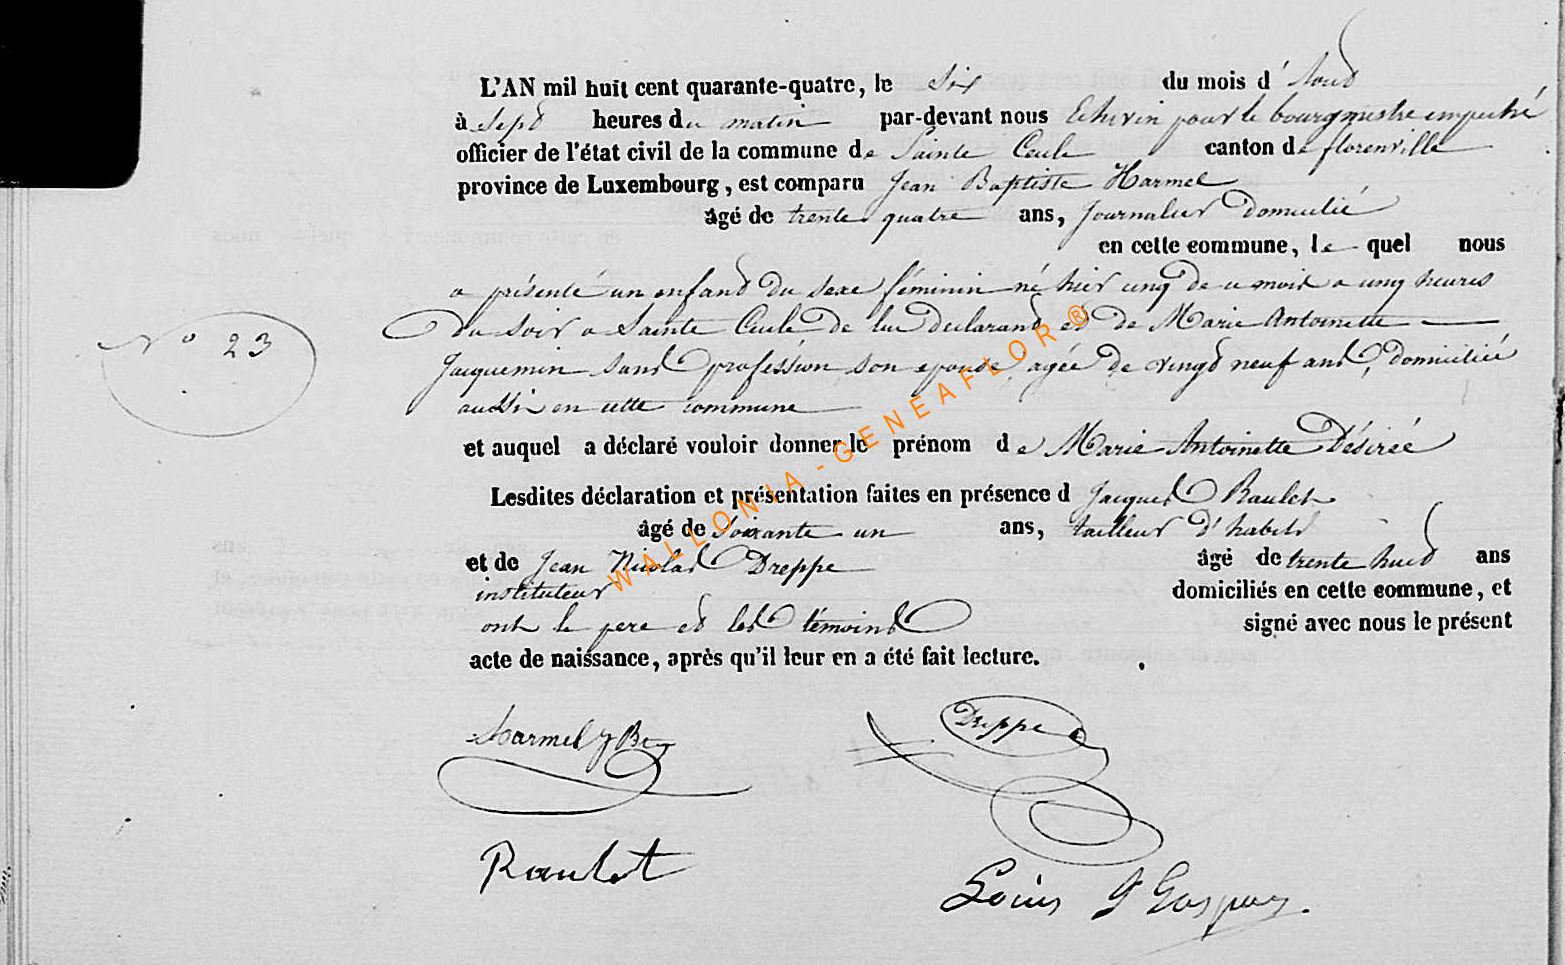 L'AN mil huit cent quarante-quatre, le Six du mois d'Aout
à Sept heures du matin par-devant nous Echevin pour le bourgmestre empeché
officier de l'état civil de la commune de Sainte Cecile canton de florenville
province de Luxembourg, est comparu Jean Baptiste Harmel
âgé de trente quatre ans, Journalier Domicilié
en cette commune, le quel nous
a présenté un enfant du sexe féminin né hier cinq de ce mois a cinq heures
Du Soir a Sainte Cecile De lui Declarant et De Marie Antoinette
N° 23
Jacquemin sans profession son epouse, agée De vingt neuf ans, Domiciliée
aussi en cette commune
et auquel a déclaré vouloir donner le prénom de Marie Antoinette Désirée
Lesdites déclaration et présentation faites en présence d Jacques Raulet
âgé de soixante un ans, tailleur d'habits
et de Jean Nicolas Dreppe âgé de trente huit ans
instituteur domiciliés en cette commune, et
ont le pere et les témoins signé avec nous le présent
acte de naissance, après qu'il leur en a été fait lecture.
Harmel J B
Dreppe
Raulet
Louis J Gaspar.
WALLONIA - GENEAFLOR ®